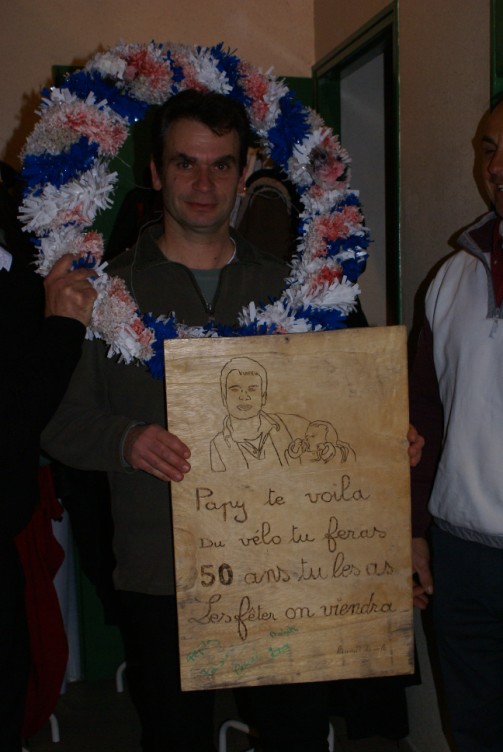 Papy te voila
Du vélo tu feras
50 ans tu les as
Les fêter on viendra